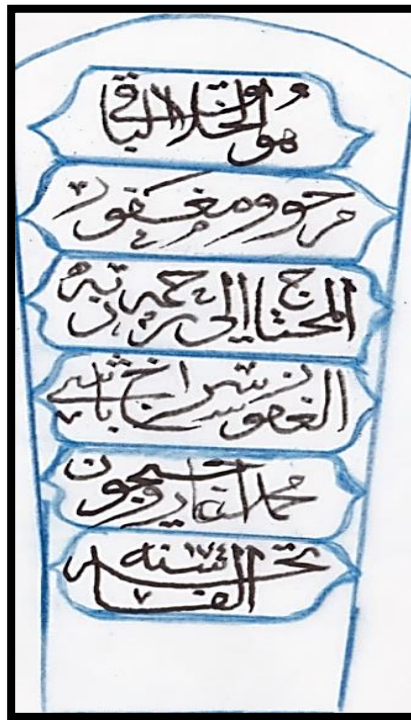 هو الخلاق الباقي
مرحوم و مغفور
المحتاج الى رحمة ربه
الغفور سراج باشى
محمد افندي روحيچون
الفاتحه سنه ١٧٤